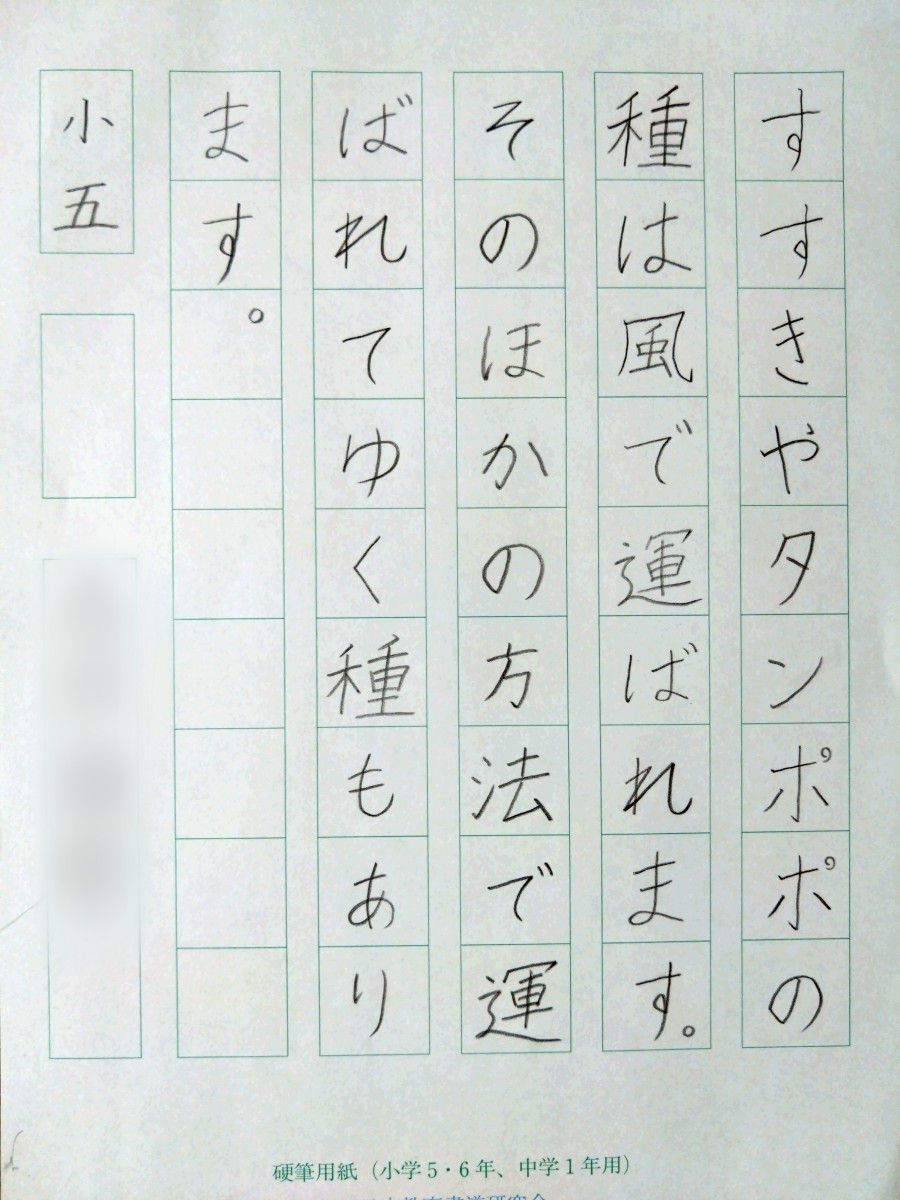 すすきやタンポポの
種は風で運ばれます。
そのほかの方法で運
ばれてゆく種もあり
ます。
小五
硬筆用紙(小学5・6年、中学1年用)